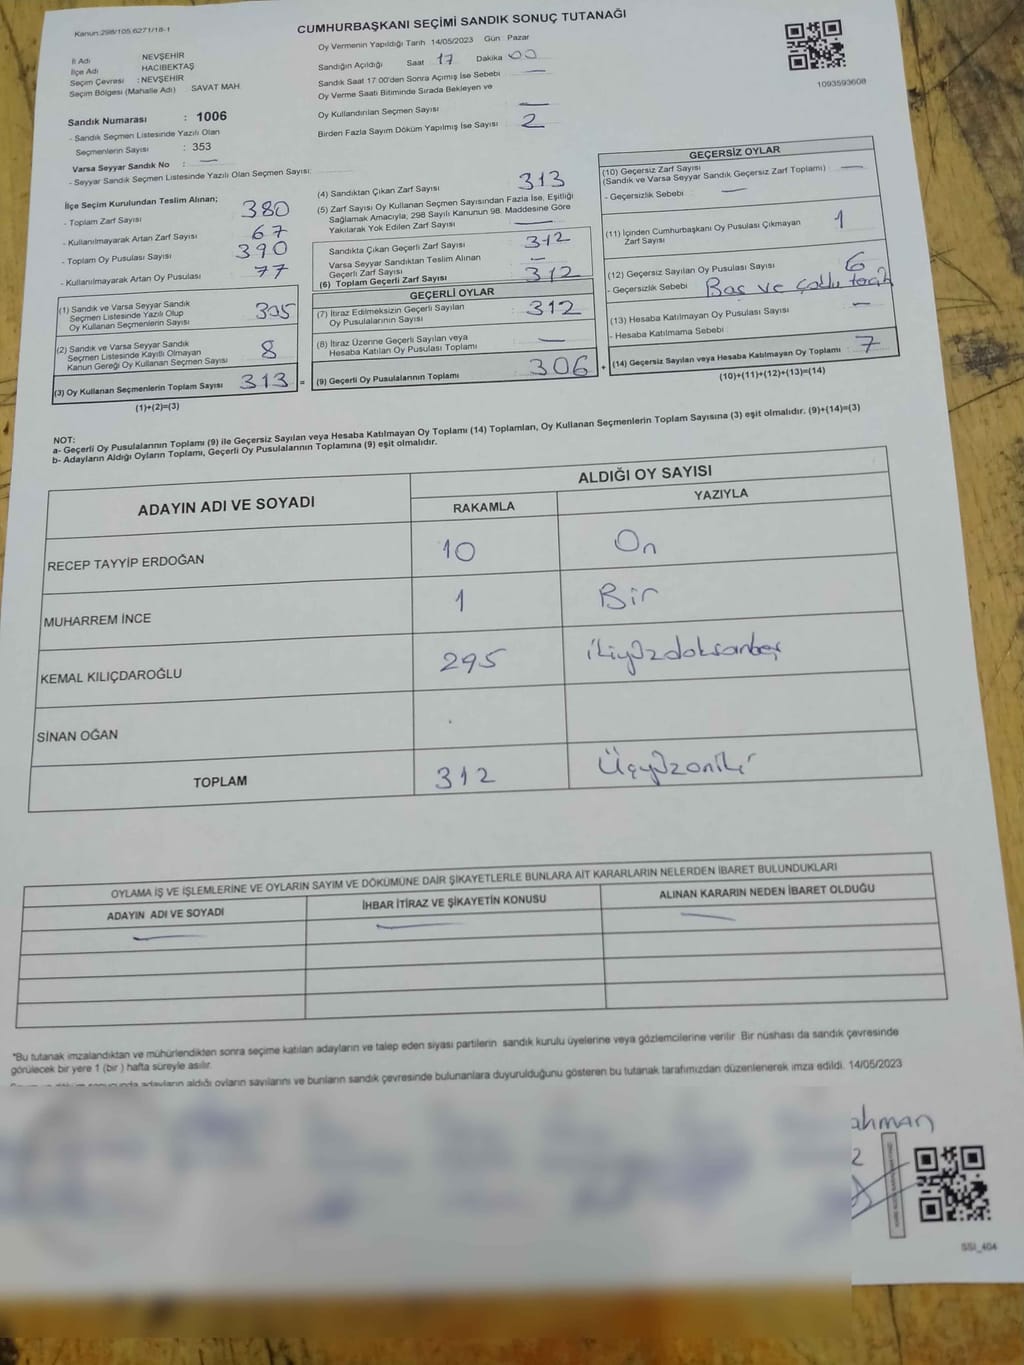 Kanun:298/105,6271/18-1
CUMHURBAŞKANI SEÇİMİ SANDIK SONUÇ TUTANAĞI
İl Adı NEVŞEHİR
İlçe Adı HACIBEKTAŞ
Seçim Çevresi : NEVŞEHİR
Seçim Bölgesi (Mahalle Adı) SAVAT MAH.
Sandık Numarası : 1006
- Sandık Seçmen Listesinde Yazılı Olan
Seçmenlerin Sayısı : 353
Varsa Seyyar Sandık No : —
- Seyyar Sandık Seçmen Listesinde Yazılı Olan Seçmen Sayısı:
Oy Vermenin Yapıldığı Tarih 14/05/2023 Gün Pazar
Sandığın Açıldığı Saat 17 Dakika 00
Sandık Saat 17 00'den Sonra Açımış İse Sebebi —
Oy Verme Saati Bitiminde Sırada Bekleyen ve
Oy Kullandırılan Seçmen Sayısı —
Birden Fazla Sayım Döküm Yapılmış İse Sayısı 2
1093593608
İlçe Seçim Kurulundan Teslim Alınan;
- Toplam Zarf Sayısı 380
- Kullanılmayarak Artan Zarf Sayısı 67
- Toplam Oy Pusulası Sayısı 390
- Kullanılmayarak Artan Oy Pusulası 77
(1) Sandık ve Varsa Seyyar Sandık
Seçmen Listesinde Yazılı Olup
Oy Kullanan Seçmenlerin Sayısı 305
(2) Sandık ve Varsa Seyyar Sandık
Seçmen Listesinde Kayıtlı Olmayan
Kanun Gereği Oy Kullanan Seçmen Sayısı 8
(3) Oy Kullanan Seçmenlerin Toplam Sayısı 313 =
(1)+(2)=(3)
(4) Sandıktan Çıkan Zarf Sayısı 313
(5) Zarf Sayısı Oy Kullanan Seçmen Sayısından Fazla İse, Eşitliği
Sağlamak Amacıyla, 298 Sayılı Kanunun 98. Maddesine Göre
Yakılarak Yok Edilen Zarf Sayısı —
Sandıkta Çıkan Geçerli Zarf Sayısı 312
Varsa Seyyar Sandıktan Teslim Alınan
Geçerli Zarf Sayısı —
(6) Toplam Geçerli Zarf Sayısı 312
GEÇERLİ OYLAR
(7) İtiraz Edilmeksizin Geçerli Sayılan
Oy Pusulalarının Sayısı 312
(8) İtiraz Üzerine Geçerli Sayılan veya
Hesaba Katılan Oy Pusulası Toplamı —
(9) Geçerli Oy Pusulalarının Toplamı 306 +
GEÇERSİZ OYLAR
(10) Geçersiz Zarf Sayısı
(Sandık ve Varsa Seyyar Sandık Geçersiz Zarf Toplamı) —
- Geçersizlik Sebebi —
(11) İçinden Cumhurbaşkanı Oy Pusulası Çıkmayan
Zarf Sayısı 1
(12) Geçersiz Sayılan Oy Pusulası Sayısı 6
- Geçersizlik Sebebi Boş ve çoklu tercih
(13) Hesaba Katılmayan Oy Pusulası Sayısı —
- Hesaba Katılmama Sebebi
(14) Geçersiz Sayılan veya Hesaba Katılmayan Oy Toplamı 7
(10)+(11)+(12)+(13)=(14)
NOT:
a- Geçerli Oy Pusulalarının Toplamı (9) ile Geçersiz Sayılan veya Hesaba Katılmayan Oy Toplamı (14) Toplamları, Oy Kullanan Seçmenlerin Toplam Sayısına (3) eşit olmalıdır. (9)+(14)=(3)
b- Adayların Aldığı Oyların Toplamı, Geçerli Oy Pusulalarının Toplamına (9) eşit olmalıdır.
ADAYIN ADI VE SOYADI ALDIĞI OY SAYISI
RAKAMLA YAZIYLA
RECEP TAYYİP ERDOĞAN 10 On
MUHARREM İNCE 1 Bir
KEMAL KILIÇDAROĞLU 295 ikiyüzdoksanbeş
SİNAN OĞAN
TOPLAM 312 Üçyüzoniki
OYLAMA İŞ VE İŞLEMLERİNE VE OYLARIN SAYIM VE DÖKÜMÜNE DAİR ŞİKAYETLERLE BUNLARA AİT KARARLARIN NELERDEN İBARET BULUNDUKLARI
ADAYIN ADI VE SOYADI İHBAR İTİRAZ VE ŞİKAYETİN KONUSU ALINAN KARARIN NEDEN İBARET OLDUĞU
— — —
*Bu tutanak imzalandıktan ve mühürlendikten sonra seçime katılan adayların ve talep eden siyasi partilerin sandık kurulu üyelerine veya gözlemcilerine verilir. Bir nüshası da sandık çevresinde
görülecek bir yere 1 (bir ) hafta süreyle asılır.
adayların aldığı oyların sayılarını ve bunların sandık çevresinde bulunanlara duyurulduğunu gösteren bu tutanak tarafımızdan düzenlenerek imza edildi. 14/05/2023
ahman
2
SSI_404